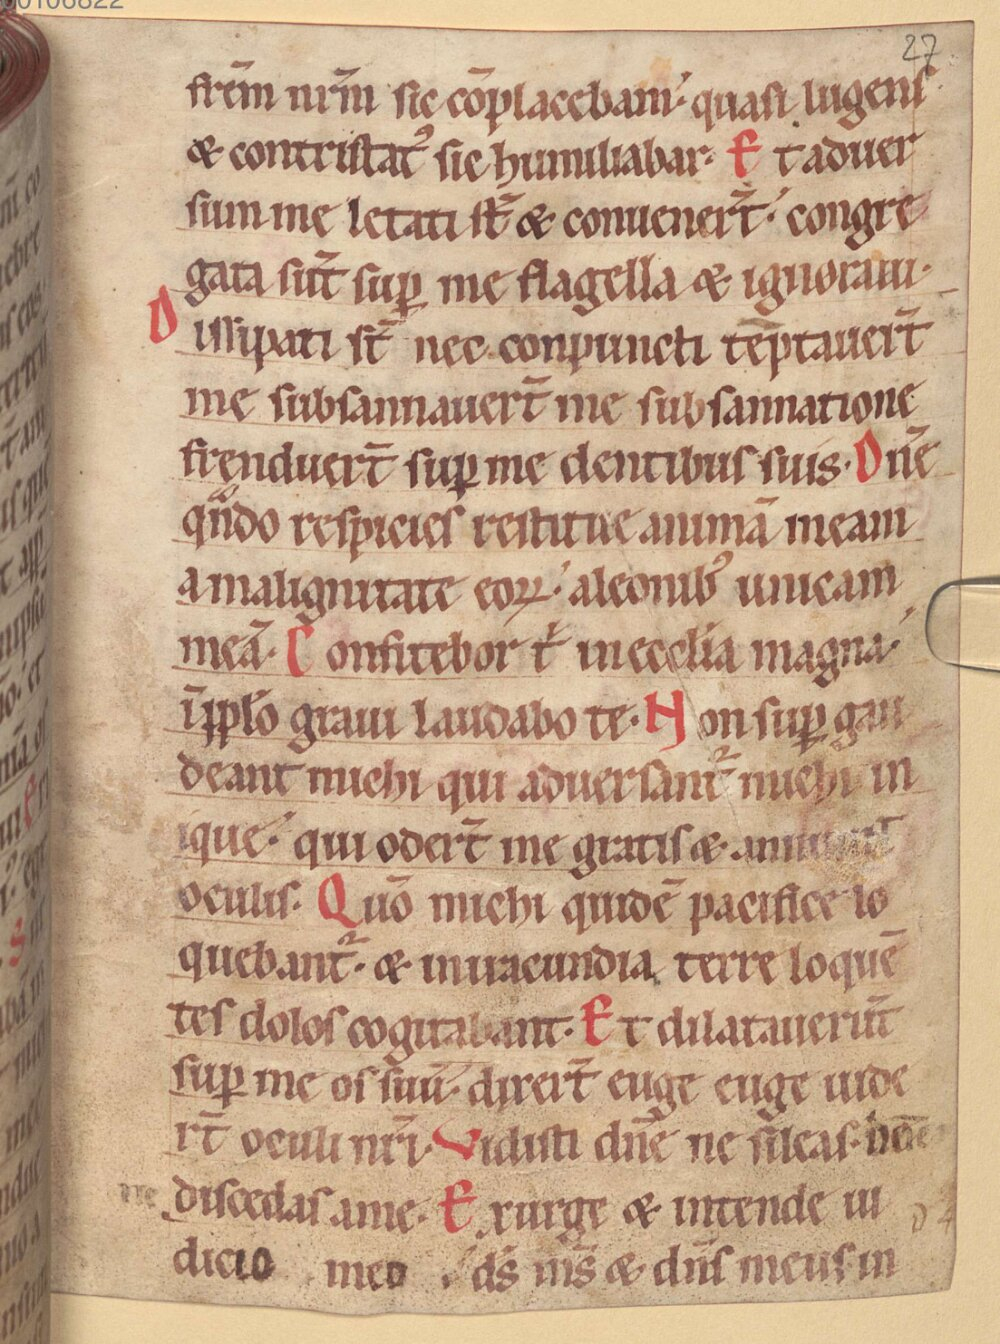 00106822
27
frēm nr̄m sic cōplacebam quasi lugens
& contristatꝰ sic humiliabar. Et aduer
sum me letati st̄ & conuenert̄ congre
gata sūt suꝑ me flagella & ignoraui.
Dissipati st̄ nec conpuncti tēptauert̄
me subsannauert̄ me subsannatione
frenduert̄ suꝑ me dentibus suis. Dn̄e
qn̄do respicies restitue animā meam
a malignitate eoꝝ aleonibꝰ unicam
meā. Confitebor t̄ in ecclīa magna
ī pplo graui laudabo te. Non suꝑ gau
deant michi qui aduersant᷑ michi in
ique qui odert̄ me gratis &
oculis. Quō michi quidē pacifice lo
quebant᷑. & in iracundia terre loquē
tes dolos cogitabant. Et dilatauerūt
suꝑ me os suū. dixert̄ euge euge uide
rt̄ oculi nr̄i. Vidisti dn̄e ne sileas. dn̄e
ne discedas a me. Exurge & intende iu
dicio meo ds̄ ms̄ & dn̄s meus in